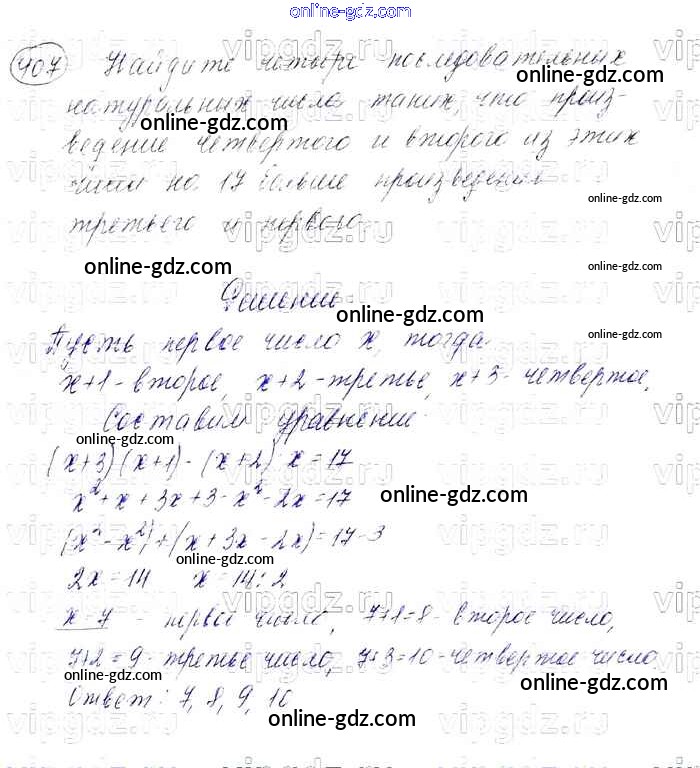 online-gdz.com
407 Найдите четыре последовательных
online-gdz.com
натуральных числа таких, что произ-
online-gdz.com
ведение четвертого и второго из этих
чисел на 17 больше произведения
online-gdz.com
третьего и первого
online-gdz.com
online-gdz.com
Решение.
online-gdz.com
Пусть первое число x, тогда
online-gdz.com
x+1 - второе, x+2 - третье, x+3 - четвертое.
Составим уравнение
online-gdz.com
(x+3)(x+1) - (x+2) x = 17
online-gdz.com
x² + x + 3x + 3 - x² - 2x = 17
online-gdz.com
(x² - x²) + (x + 3x - 2x) = 17 - 3
online-gdz.com
2x = 14 x = 14 : 2
online-gdz.com
x = 7 - первое число, 7+1=8 - второе число,
7+2 = 9 - третье число, 7+3=10 - четвертое число
online-gdz.com
online-gdz.com
Ответ: 7, 8, 9, 10
online-gdz.com